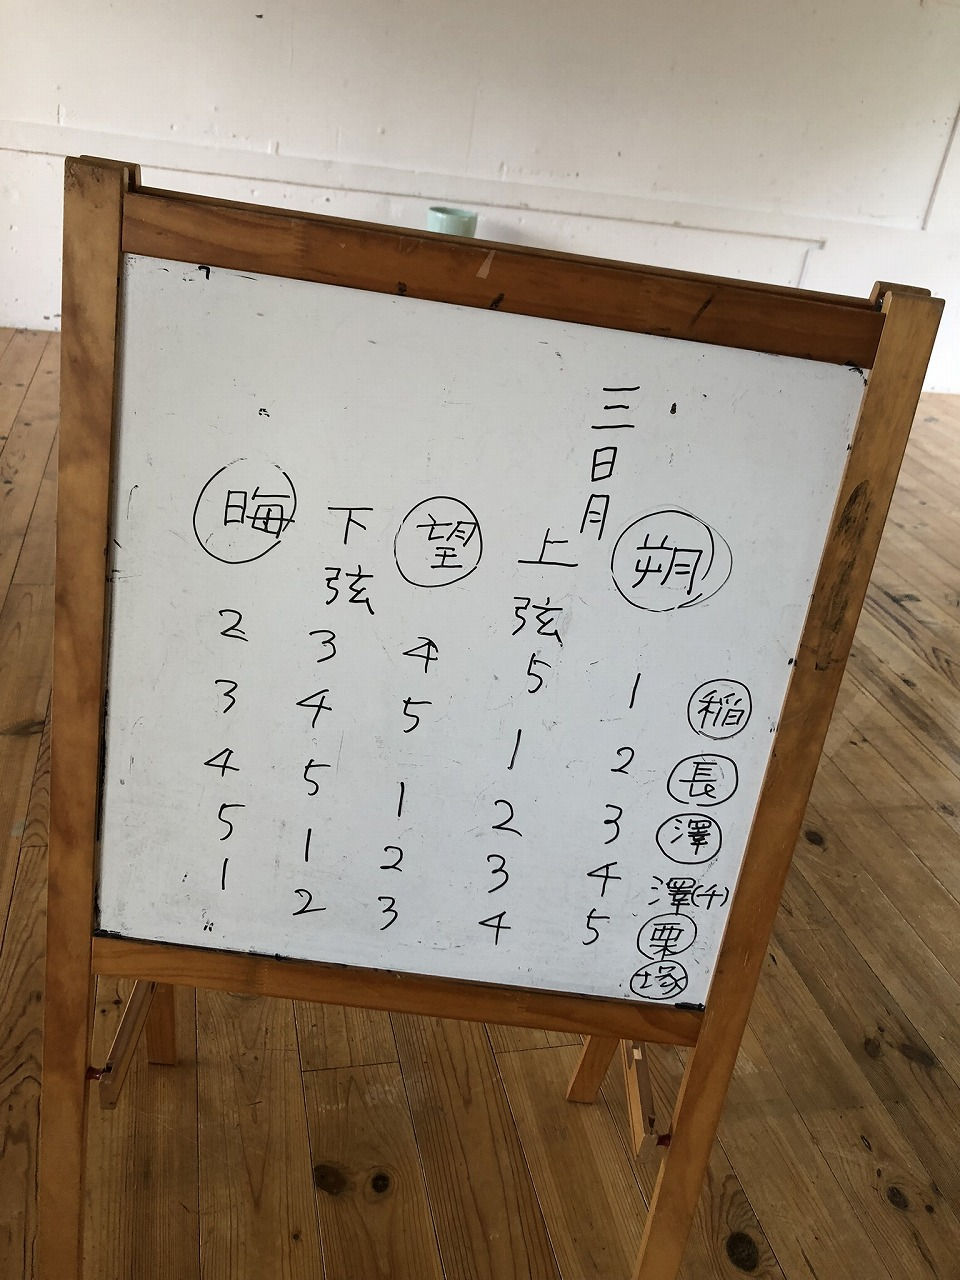 稲
長
澤
澤(千)
栗
塚
朔
1
2
3
4
5
三日月
上弦
5
1
2
3
4
望
4
5
1
2
3
下弦
3
4
5
1
2
晦
2
3
4
5
1